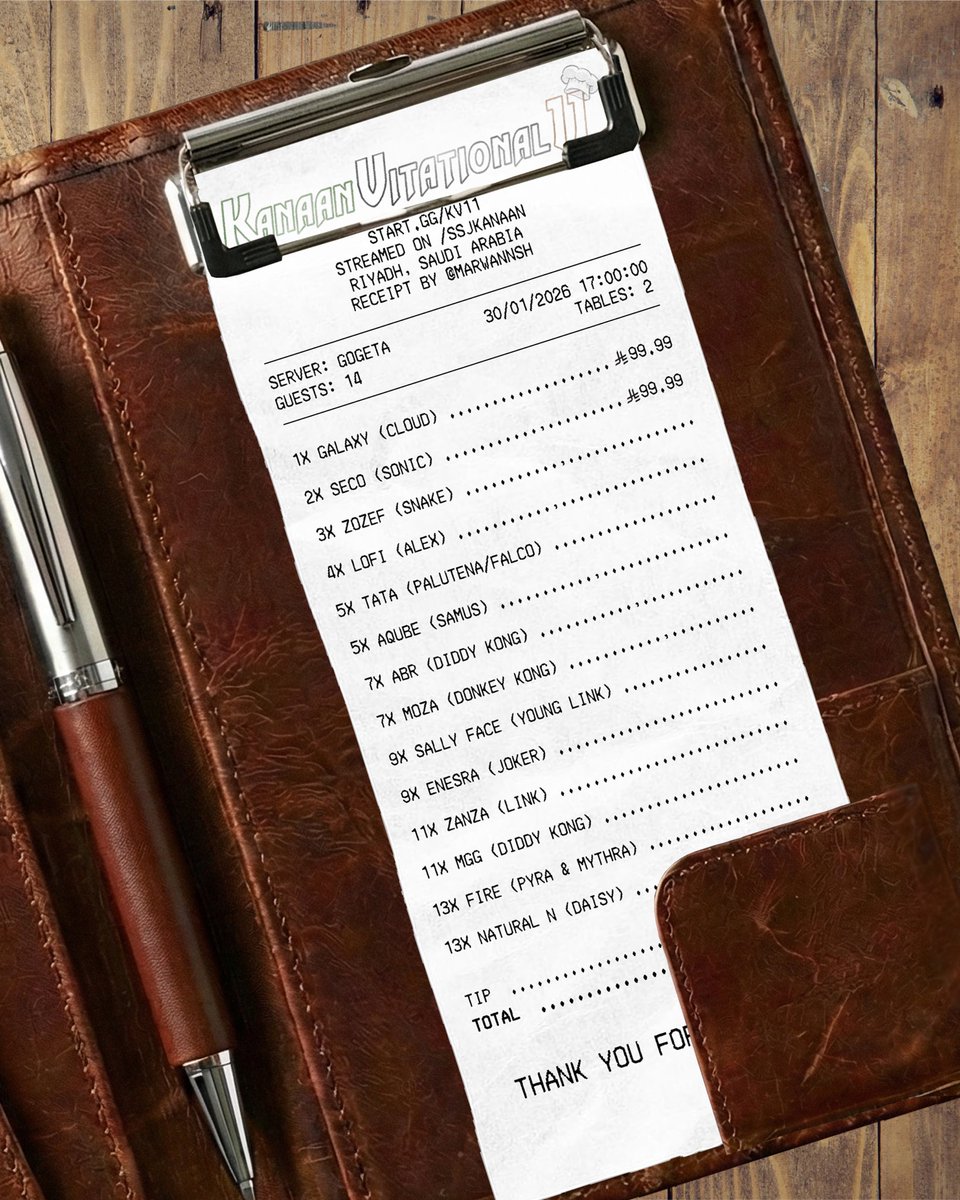 KANAAN VITATIONAL 11
START.GG/KV11
STREAMED ON /SSJKANAAN
RIYADH, SAUDI ARABIA
RECEIPT BY @MARWANNSH
30/01/2026 17:00:00
SERVER: GOGETA TABLES: 2
GUESTS: 14
1X GALAXY (CLOUD) .................... 99.99
2X SECO (SONIC) ...................... 99.99
3X ZOZEF (SNAKE) ............................
4X LOFI (ALEX) ..............................
5X TATA (PALUTENA/FALCO) ....................
5X AQUBE (SAMUS) ............................
7X ABR (DIDDY KONG) .........................
7X MOZA (DONKEY KONG) .......................
9X SALLY FACE (YOUNG LINK) ..................
9X ENESRA (JOKER) ...........................
11X ZANZA (LINK) ............................
11X MGG (DIDDY KONG) ........................
13X FIRE (PYRA & MYTHRA) ....................
13X NATURAL N (DAISY) ...
TIP ....................
TOTAL ................
THANK YOU FOR